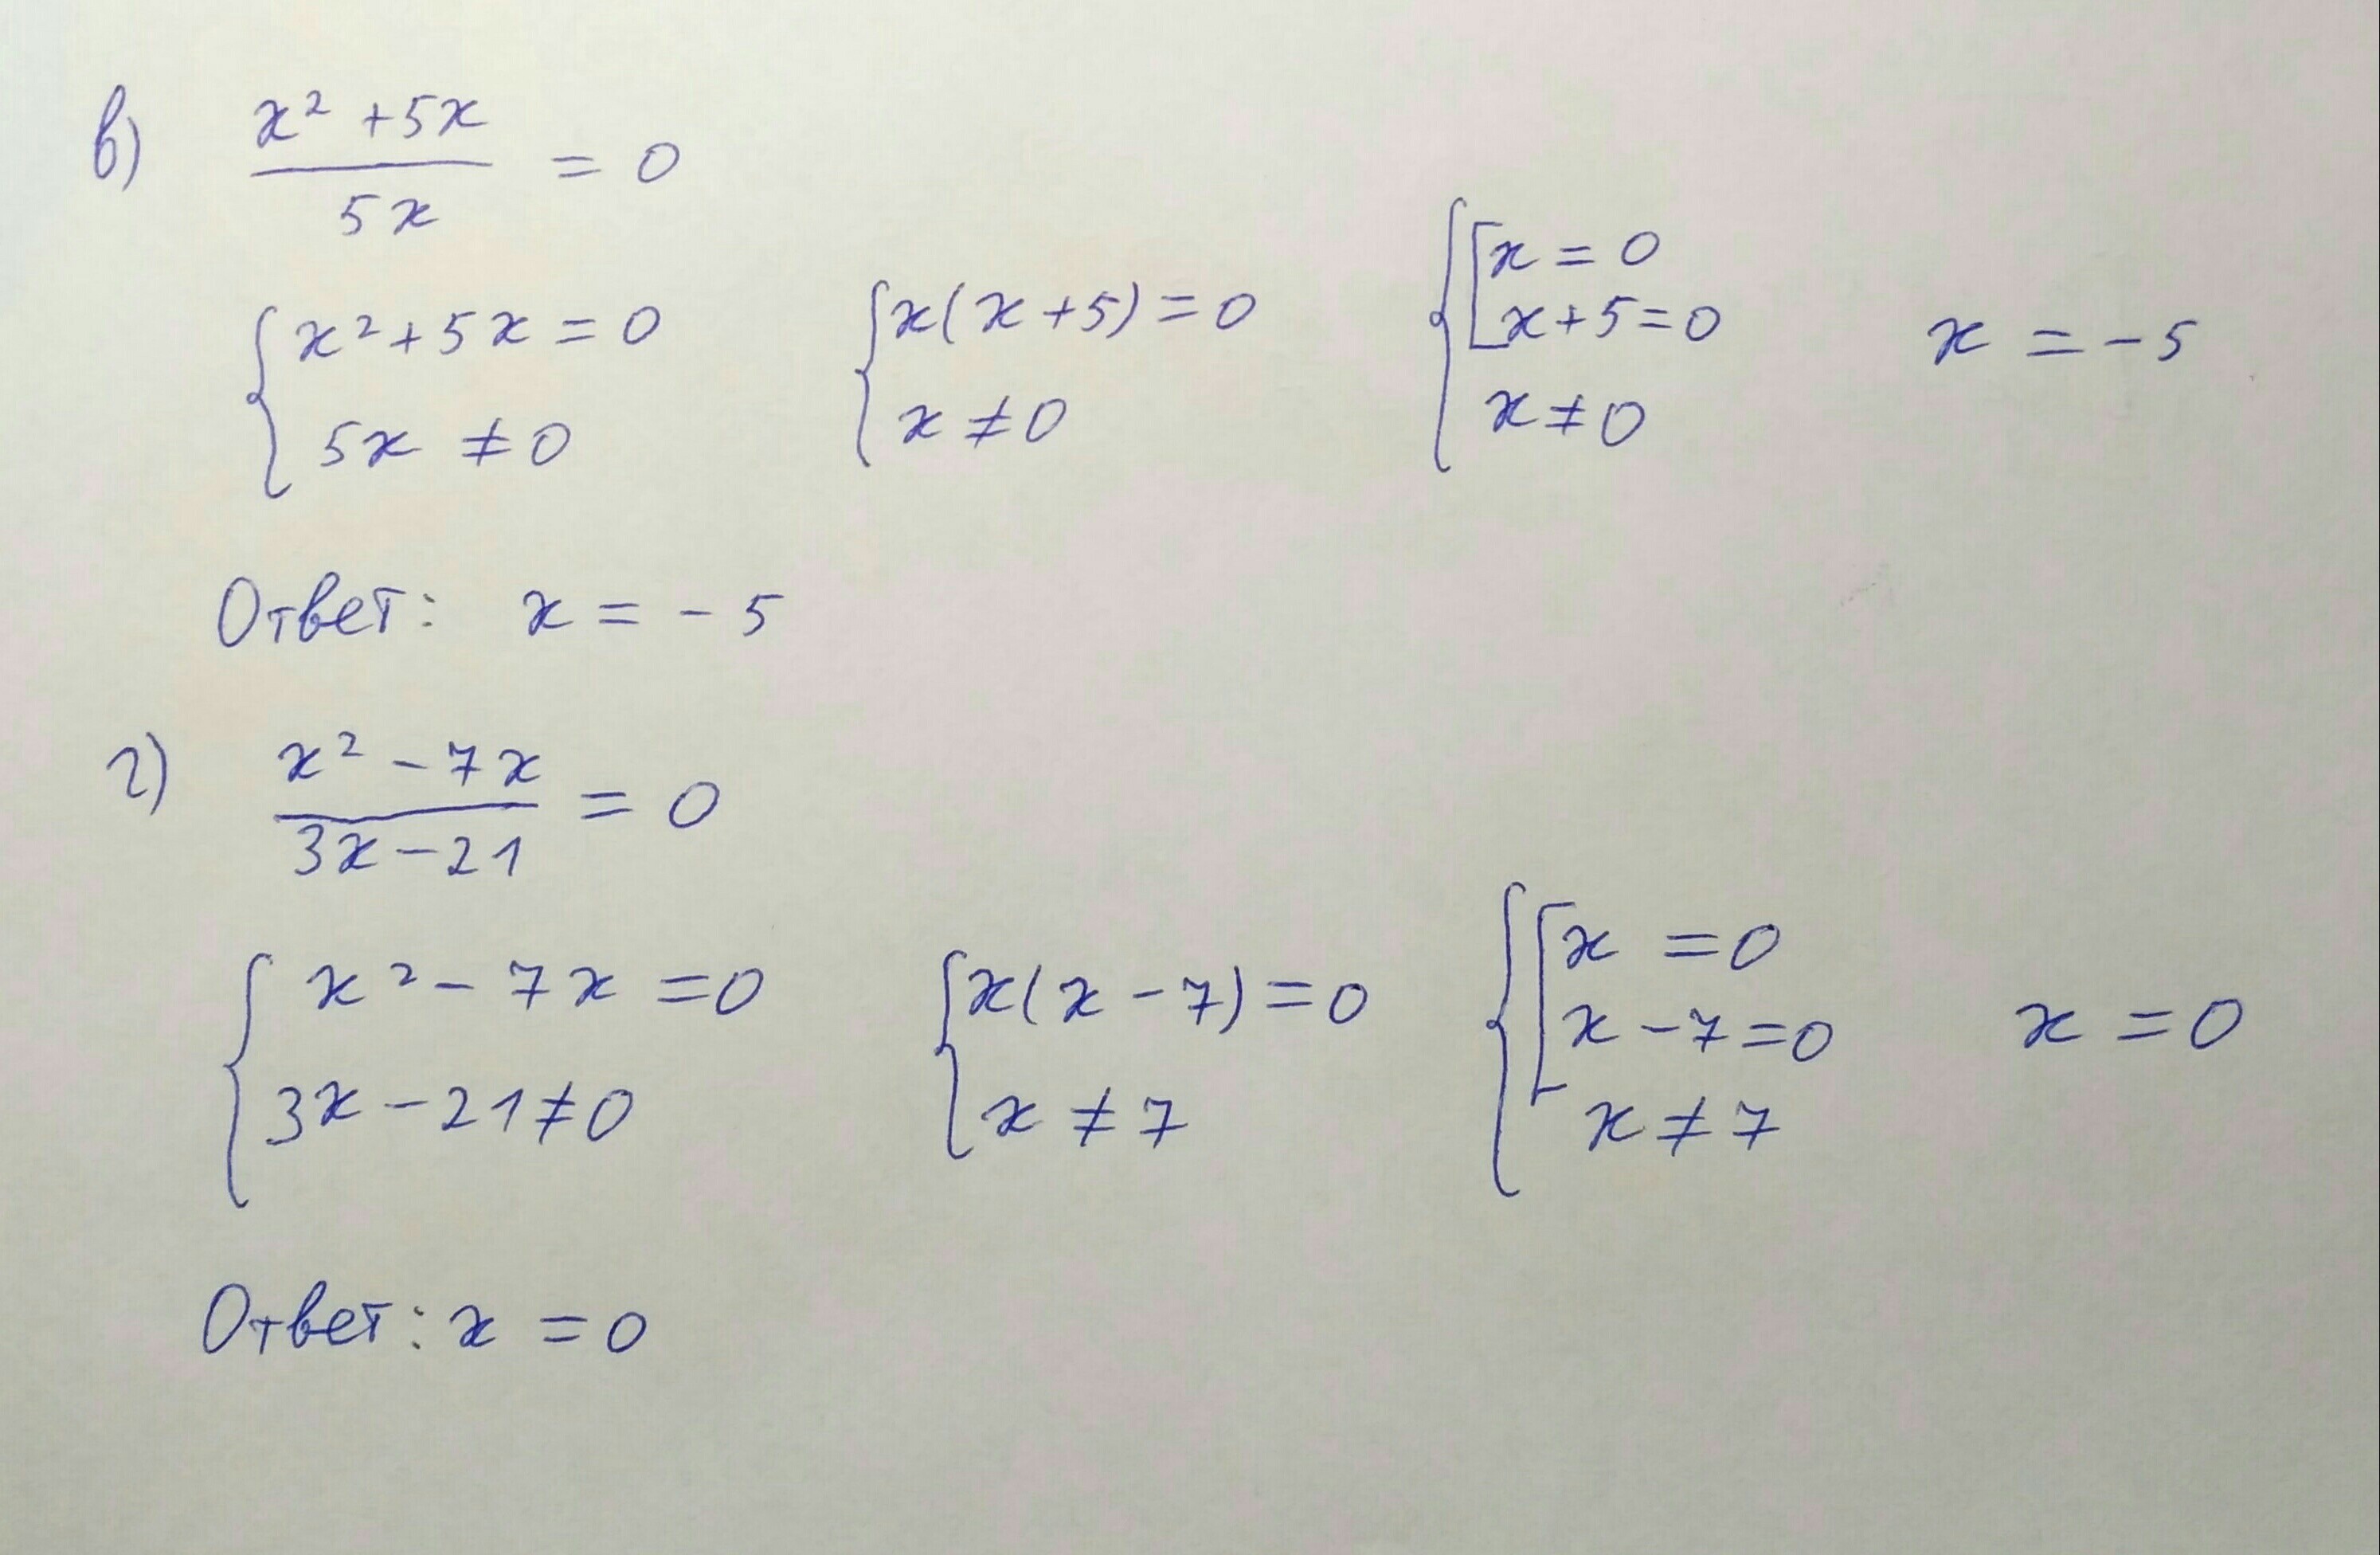 в) (x² + 5x) / (5x) = 0
{ x² + 5x = 0 ; 5x ≠ 0   { x(x + 5) = 0 ; x ≠ 0   { [ x = 0 ; x + 5 = 0 ] ; x ≠ 0   x = -5
Ответ: x = -5
г) (x² - 7x) / (3x - 21) = 0
{ x² - 7x = 0 ; 3x - 21 ≠ 0   { x(x - 7) = 0 ; x ≠ 7   { [ x = 0 ; x - 7 = 0 ] ; x ≠ 7   x = 0
Ответ: x = 0